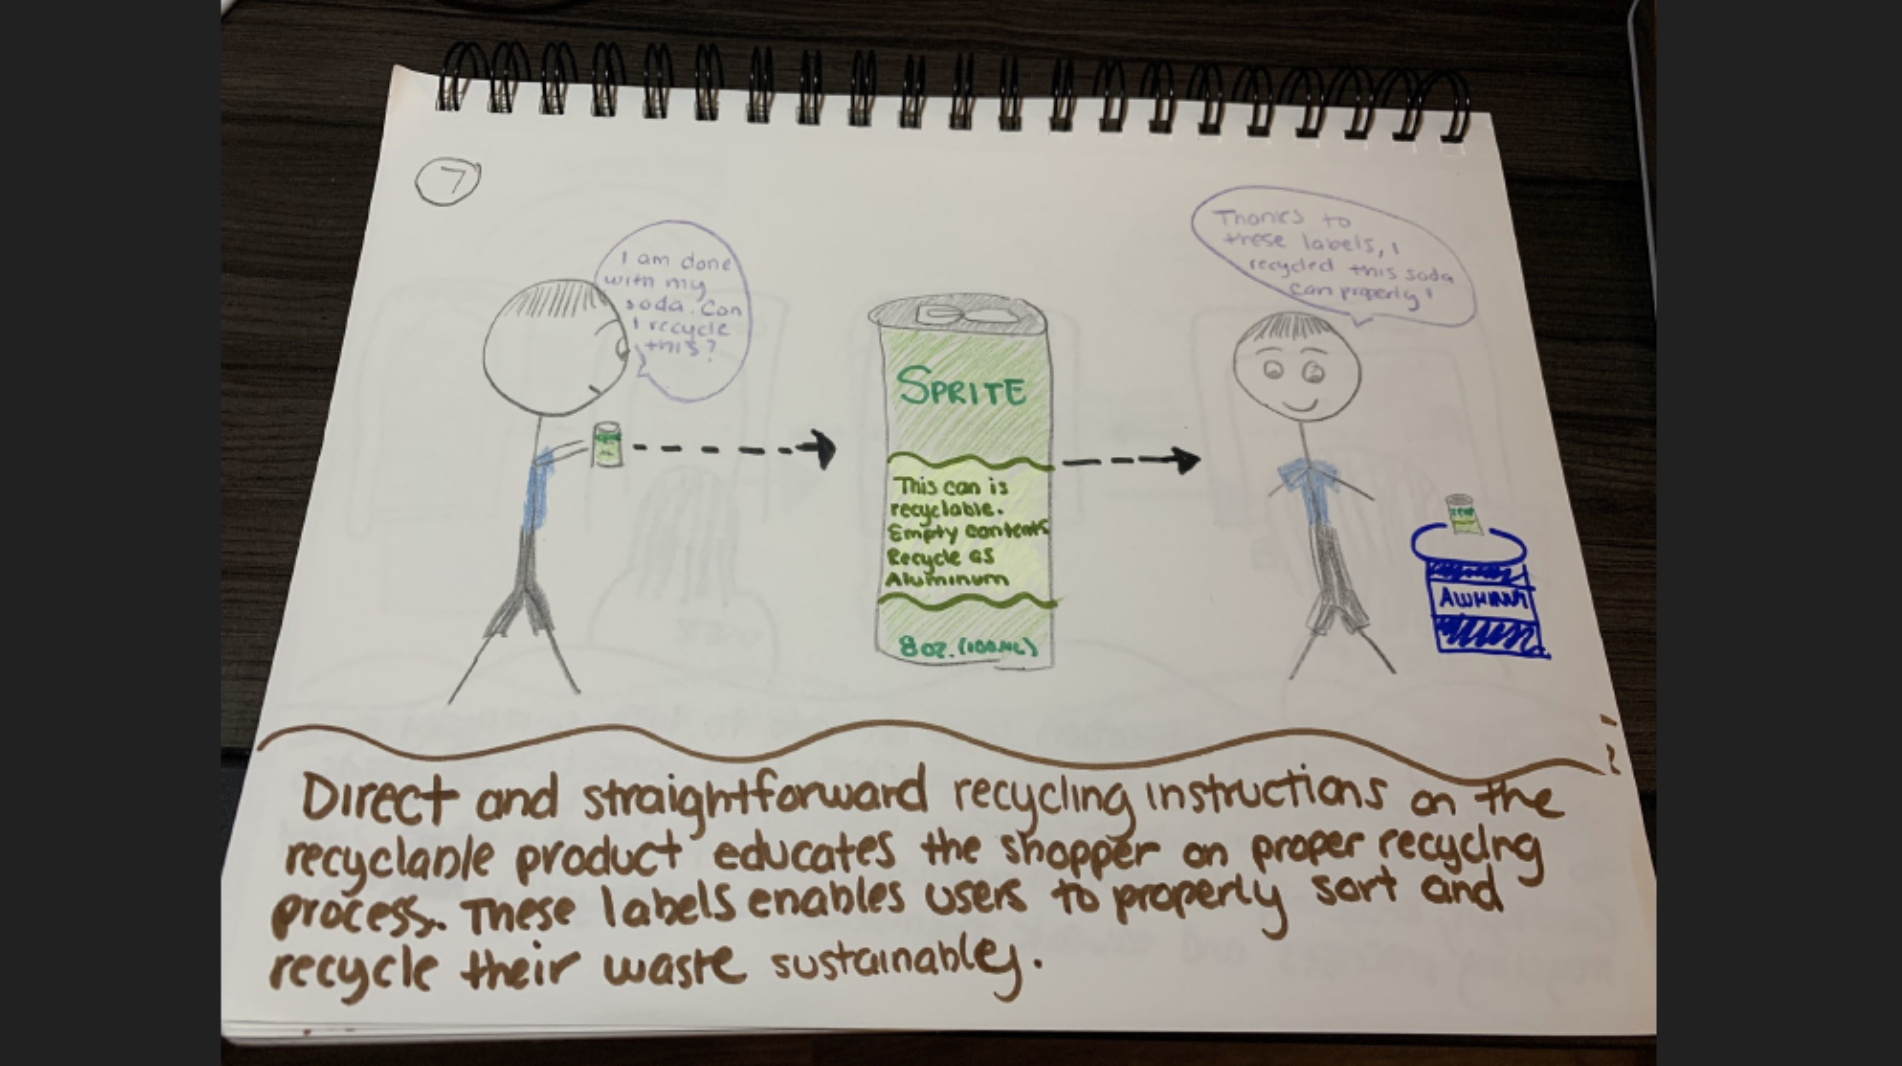 7
I am done
with my
soda. Can
I recycle
this?
SPRITE
This can is
recyclable.
Empty contents
Recycle as
Aluminum
8oz. (100ML)
Thanks to
these labels, I
recycled this soda
can properly!
Direct and straightforward recycling instructions on the
recyclable product educates the shopper on proper recycling
process. These labels enables users to properly sort and
recycle their waste sustainably.